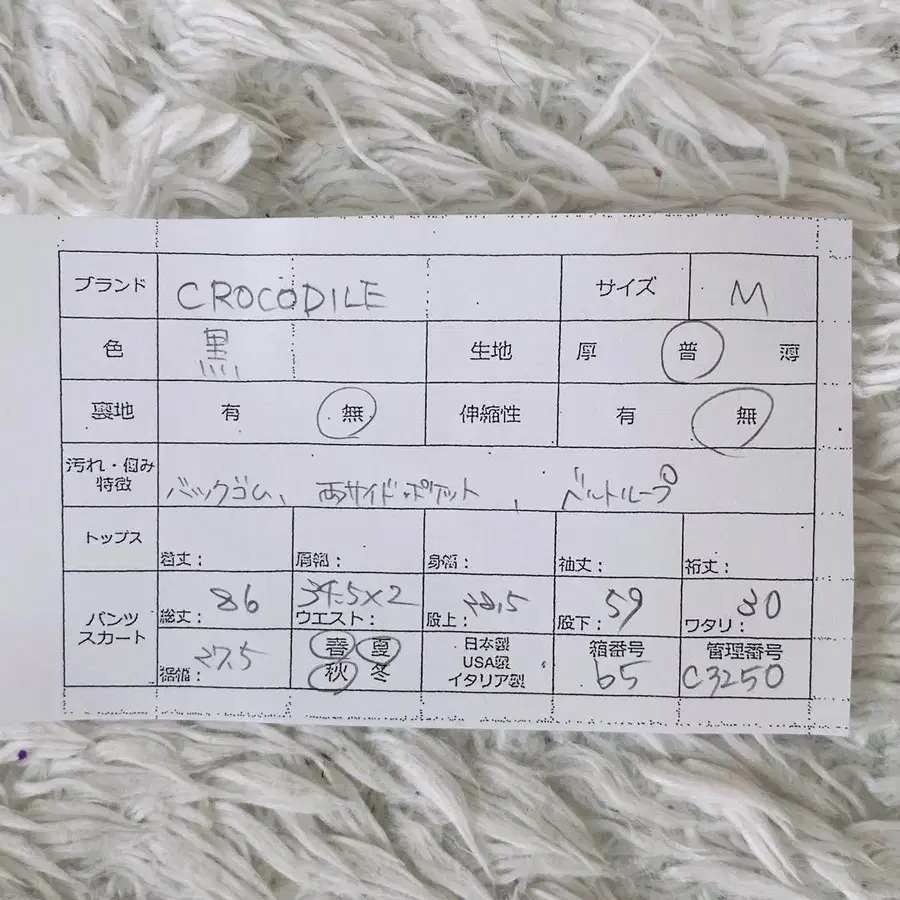 ブランド CROCODILE サイズ M
色 黒 生地 厚 普 薄
裏地 有 無 伸縮性 有 無
汚れ・傷み
特徴 バックゴム、両サイドポケット、ベルトループ
トップス 着丈: 肩幅: 身幅: 袖丈: 裄丈:
パンツ
スカート 総丈: 86 ウエスト: 34.5×2 股上: 28.5 股下: 59 ワタリ: 30
裾幅: 27.5 春 夏 秋 冬 日本製 USA製 イタリア製 箱番号 65 管理番号 C3250